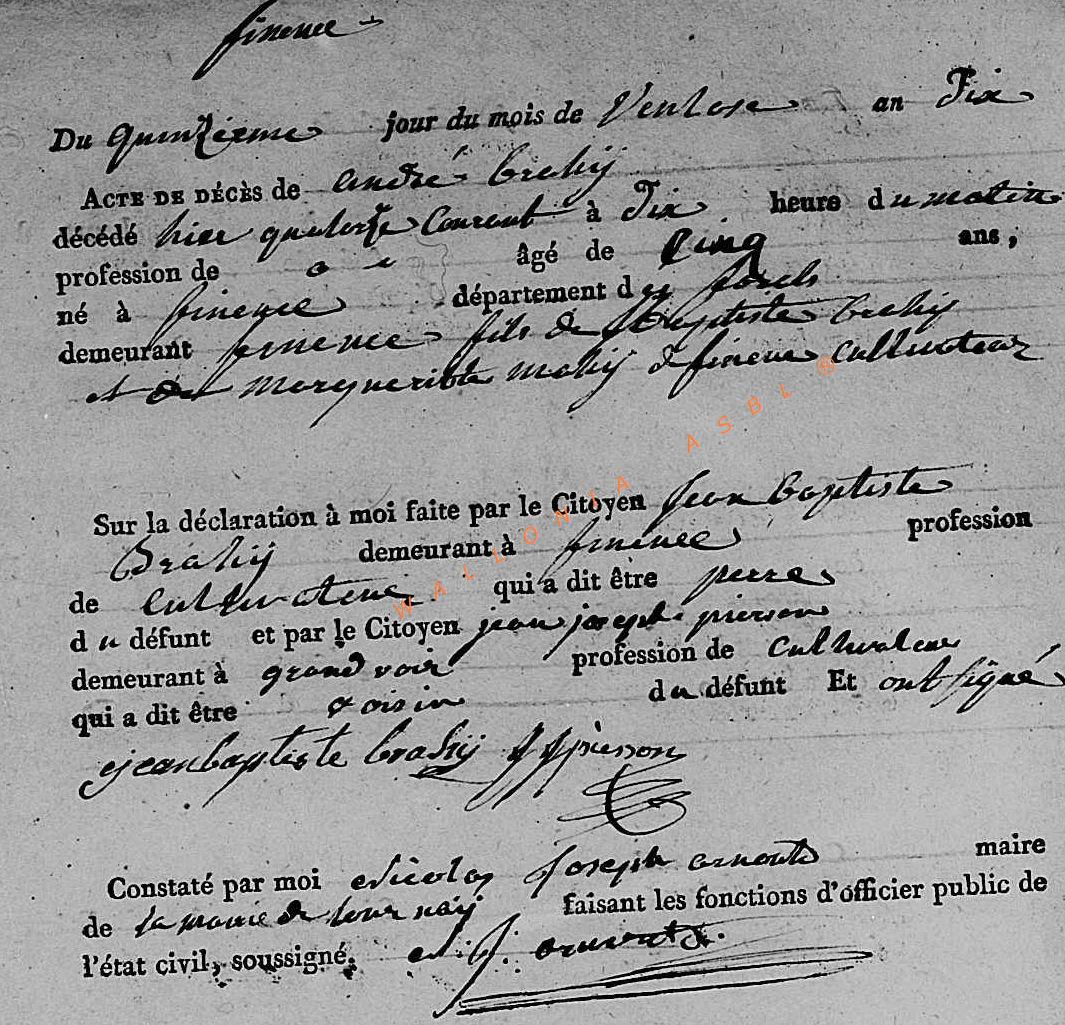 finence
Du quinzieme jour du mois de Ventose an Dix
ACTE DE DÉCÈS de andré brahij
décédé hier quatorze Courent à Dix heure du matin
profession de âgé de Cinq ans,
né à finence département des forets
demeurant finence fils de J Baptiste brahij
et de Marguerithe mahij de finence Cultivateur
Sur la déclaration à moi faite par le Citoyen Jean baptiste
Brahij demeurant à finence profession
de Cultivateur qui a dit être perre
du défunt et par le Citoyen jean joseph pierson
demeurant à grand voir profession de Cultivateur
qui a dit être voisin du défunt Et ont signé
jean baptiste brahij J J pierson
Constaté par moi Nicolas Joseph arnould maire
de la mairie de tournaÿ faisant les fonctions d'officier public de
l'état civil, soussigné. N. J.
WALLONIA ASBL ®